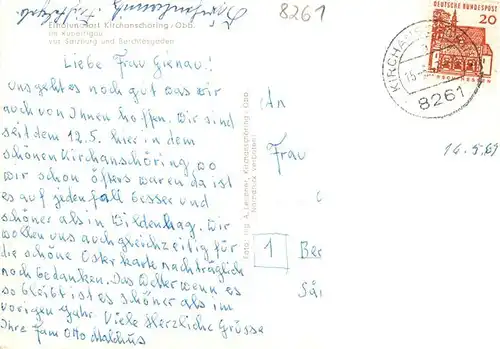 8261
Erholungsort Kirchanschöring - Obb.
im Rupertigau
vor Salzburg und Berchtesgaden
DEUTSCHE BUNDESPOST
20
KIRCHANSCHÖRING
8261
Liebe Frau Genau!
uns geht es noch gut was wir
auch von Ihnen hoffen. Wir sind
seit dem 12.5. hier in dem
schönen Kirchanschöring wo
wir schon öfters waren da ist
es auf jedenfall besser und
schöner als in Wildenhag. Wir
wollen uns auch gleichzeitig für
die schöne Osterkarte nachträglich
noch bedanken. Das Wetter wenn es
so bleibt ist es schöner als im
vorigen Jahr Viele Herzliche Grüsse
Ihre Fam Otto
An
Frau
14.5.69
1 Ber
Foto: Ing. A. Leitner, Kirchanschöring - Obb.
Nachdruck verboten!